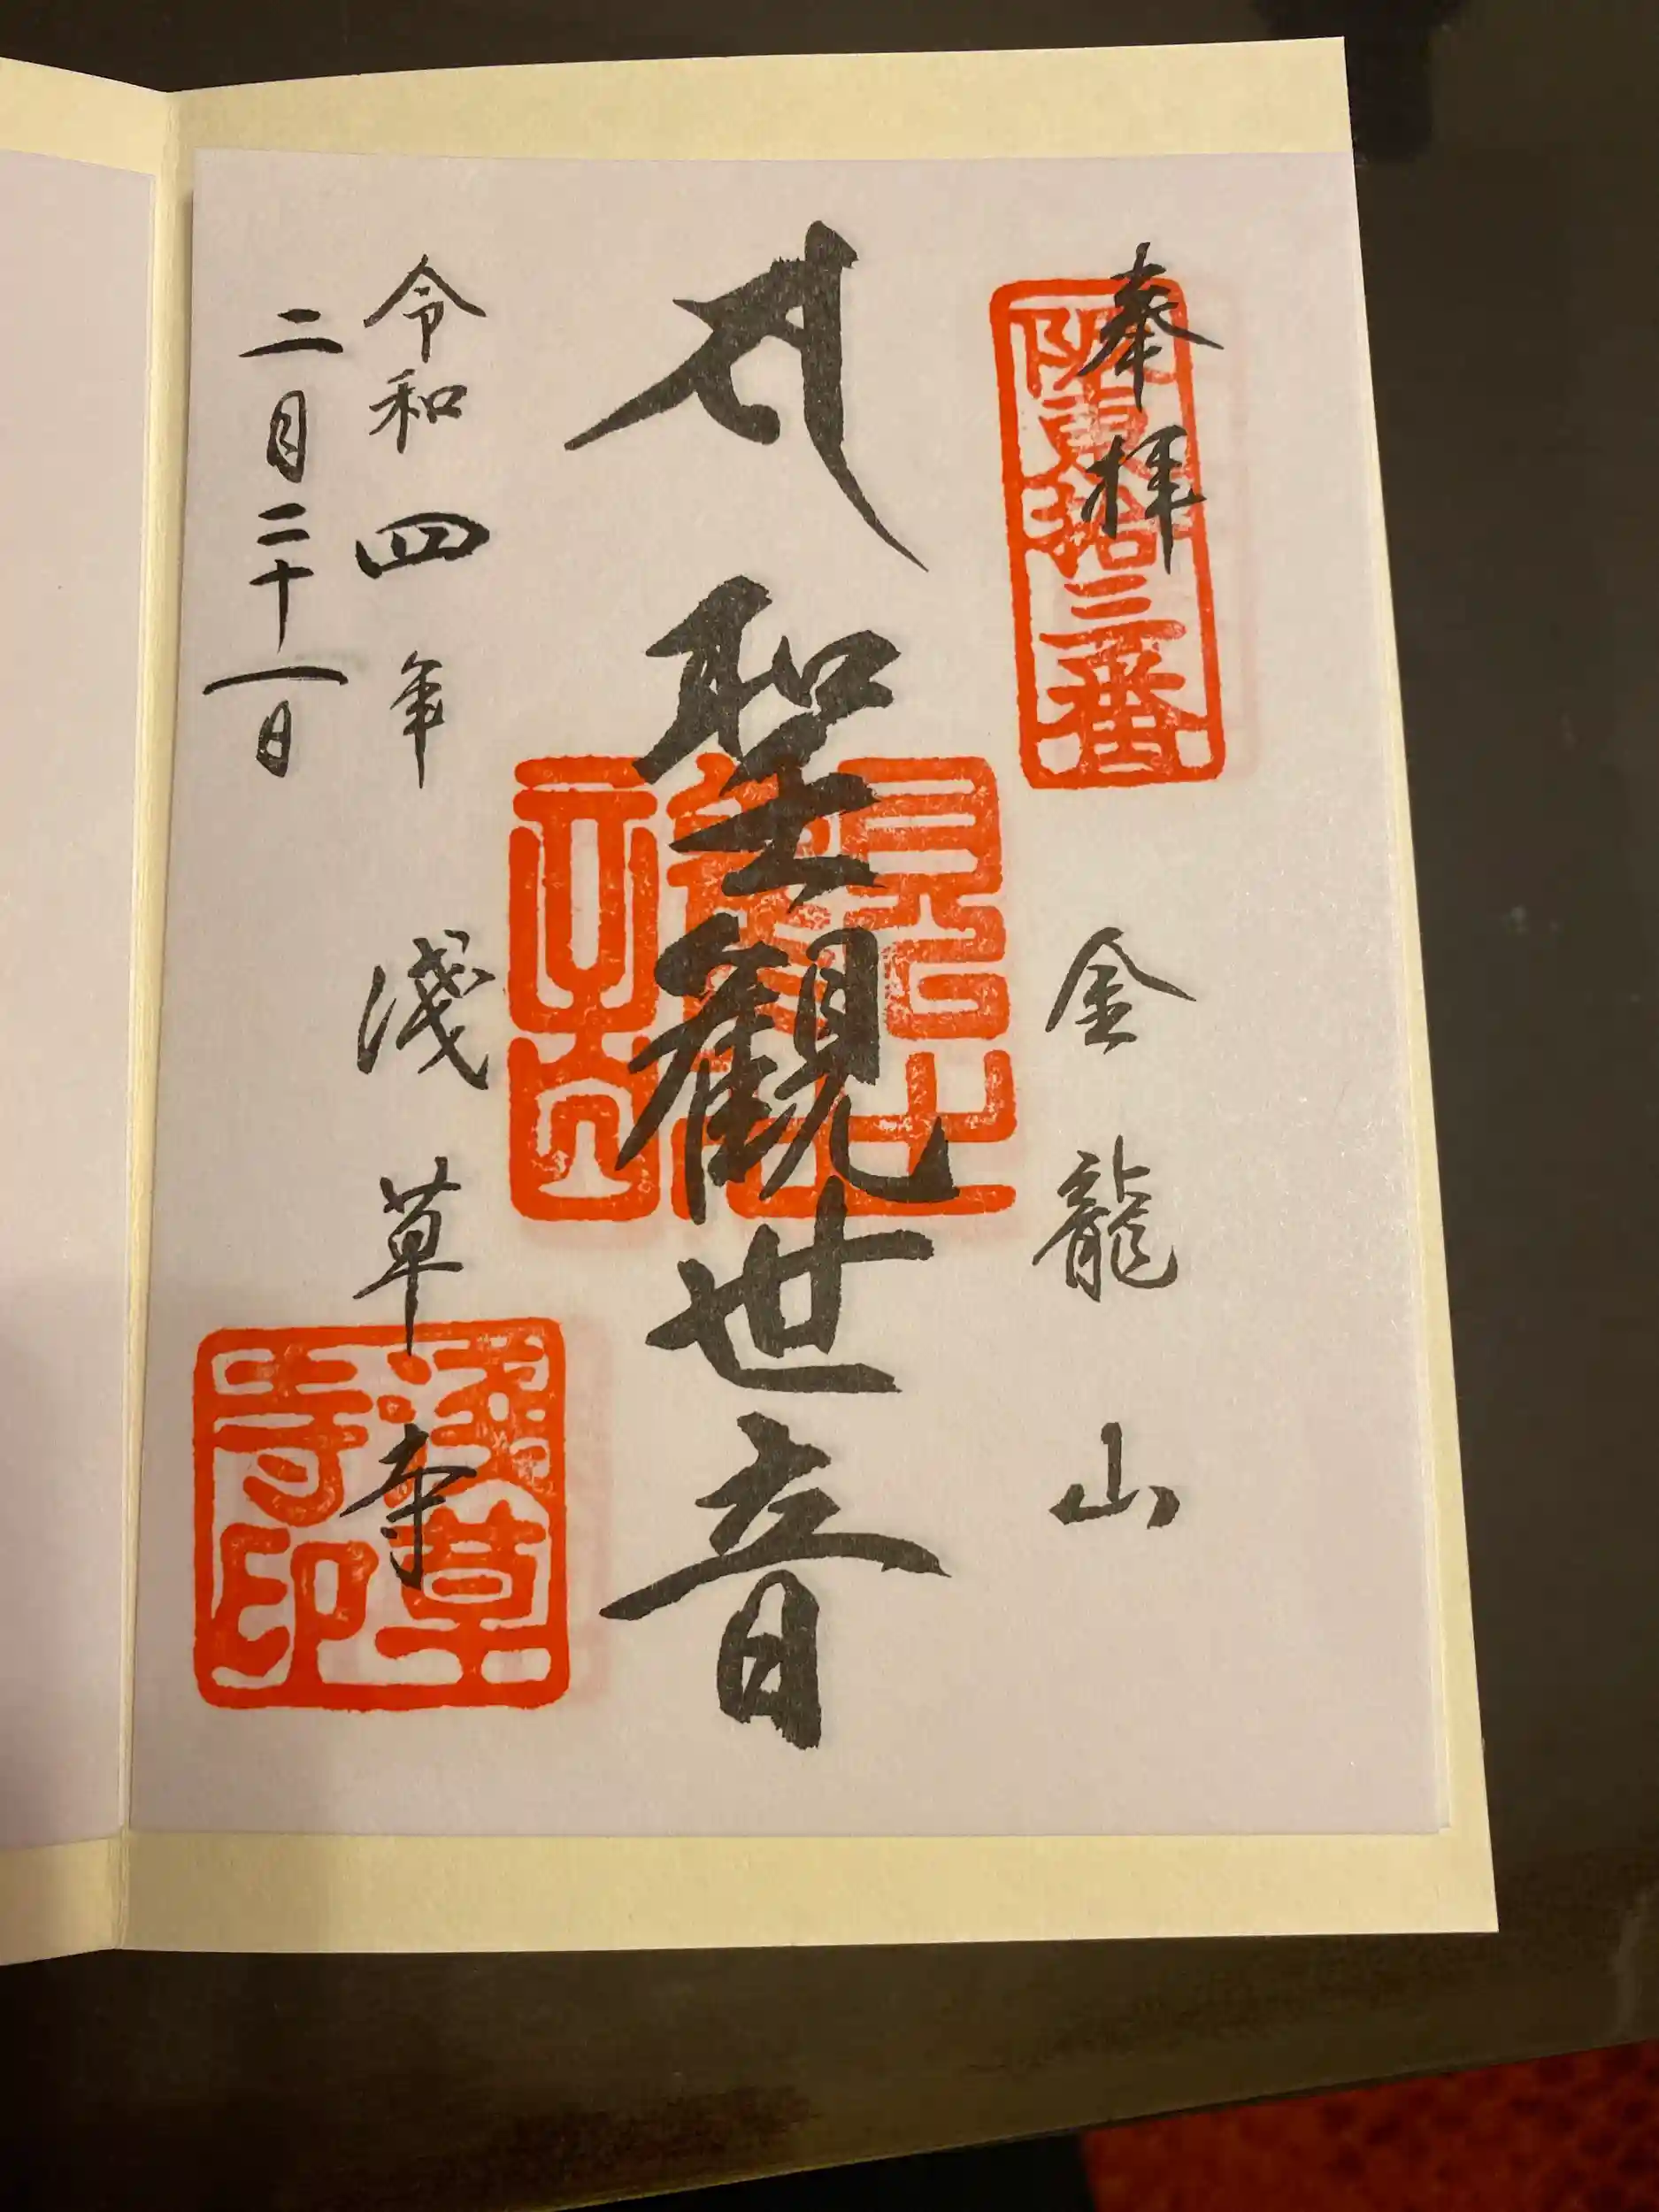 奉拝
阪東拾三番
金龍山
聖観世音
令和四年
二月二十一日
淺草寺
淺草寺印